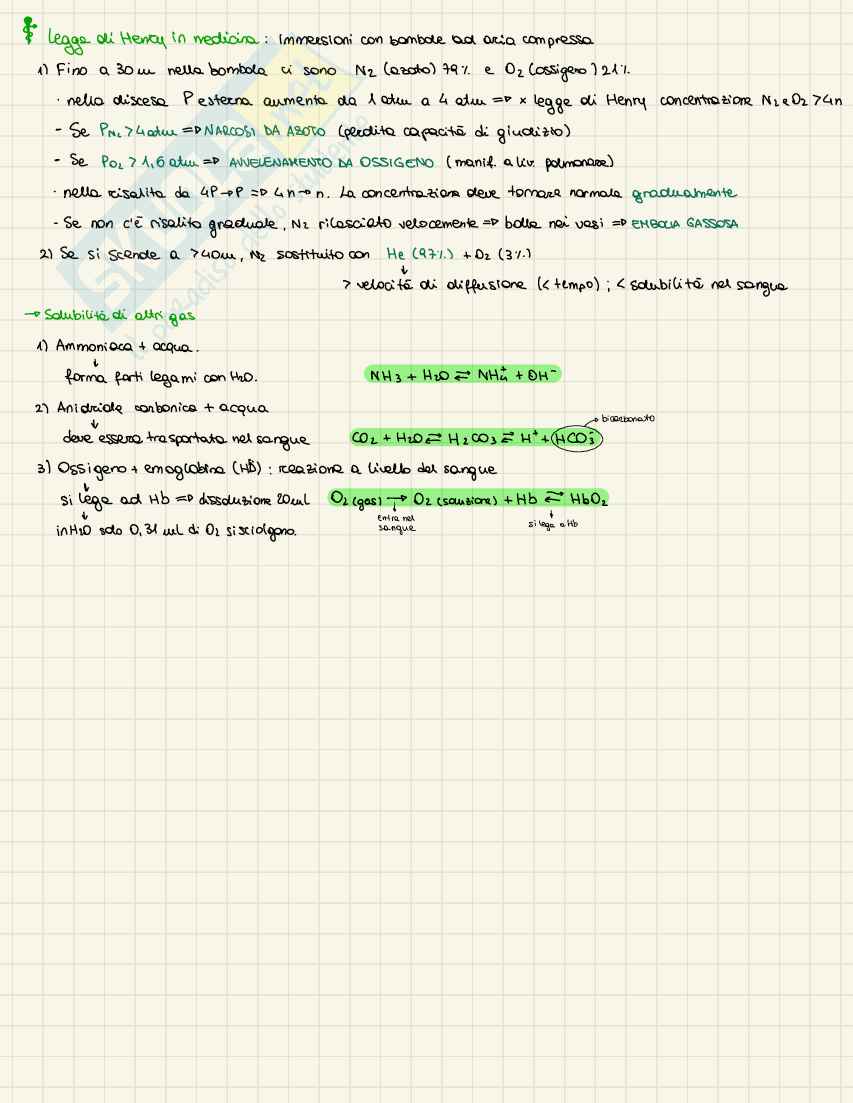 Legge di Henry in medicina: immersioni con bombole ad aria compressa
1) Fino a 30 m nella bombola ci sono N₂ (azoto) 79% e O₂ (ossigeno) 21%.
· nella discesa P esterna aumenta da 1 atm a 4 atm => × legge di Henry concentrazione N₂ e O₂ > 4n
- Se P_N₂ > 4 atm => NARCOSI DA AZOTO (perdita capacità di giudizio)
- Se P_O₂ > 1,6 atm => AVVELENAMENTO DA OSSIGENO (manif. a liv. polmonare)
· nella risalita da 4P→P => 4n→n. La concentrazione deve tornare normale gradualmente
- Se non c'è risalita graduale, N₂ rilasciato velocemente => bolle nei vasi => EMBOLIA GASSOSA
2) Se si scende a >40m, N₂ sostituito con He (97%) + O₂ (3%)
↓
> velocità di diffusione (< tempo) ; < solubilità nel sangue
→ Solubilità di altri gas
1) Ammoniaca + acqua.
↓
forma forti legami con H₂O. NH₃ + H₂O ⇄ NH₄⁺ + OH⁻
2) Anidride carbonica + acqua
↓ → bicarbonato
deve essere trasportata nel sangue CO₂ + H₂O ⇄ H₂CO₃ ⇄ H⁺ + HCO₃⁻
3) Ossigeno + emoglobina (Hb) : reazione a livello del sangue
↓
si lega ad Hb => dissoluzione 20 ml O₂ (gas) → O₂ (soluzione) + Hb ⇄ HbO₂
↓ entra nel sangue ↓ si lega a Hb
in H₂O solo 0,31 ml di O₂ si sciolgono.
SKUOLA.net
il paradiso dello studente